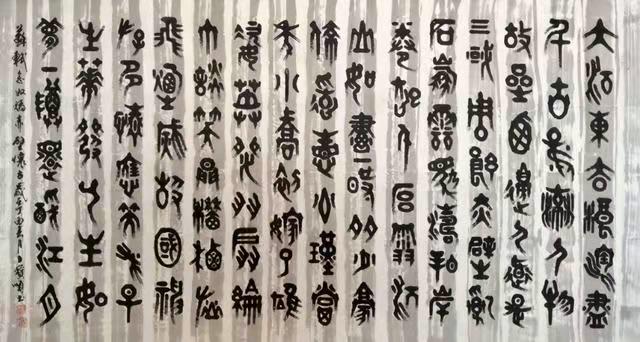 大江東去浪淘盡
千古風流人物
故壘西邊人道是
三國周郎赤壁亂
石崩雲驚濤拍岸
卷起千堆雪江
山如畫一時多少豪
傑遙想公瑾當
年小喬初嫁了雄
姿英發羽扇綸
巾談笑間檣櫓灰
飛煙滅故國神
游多情應笑我早
生華發人生如
夢一樽還酹江月
蘇軾念奴嬌赤壁懷古歲丁酉